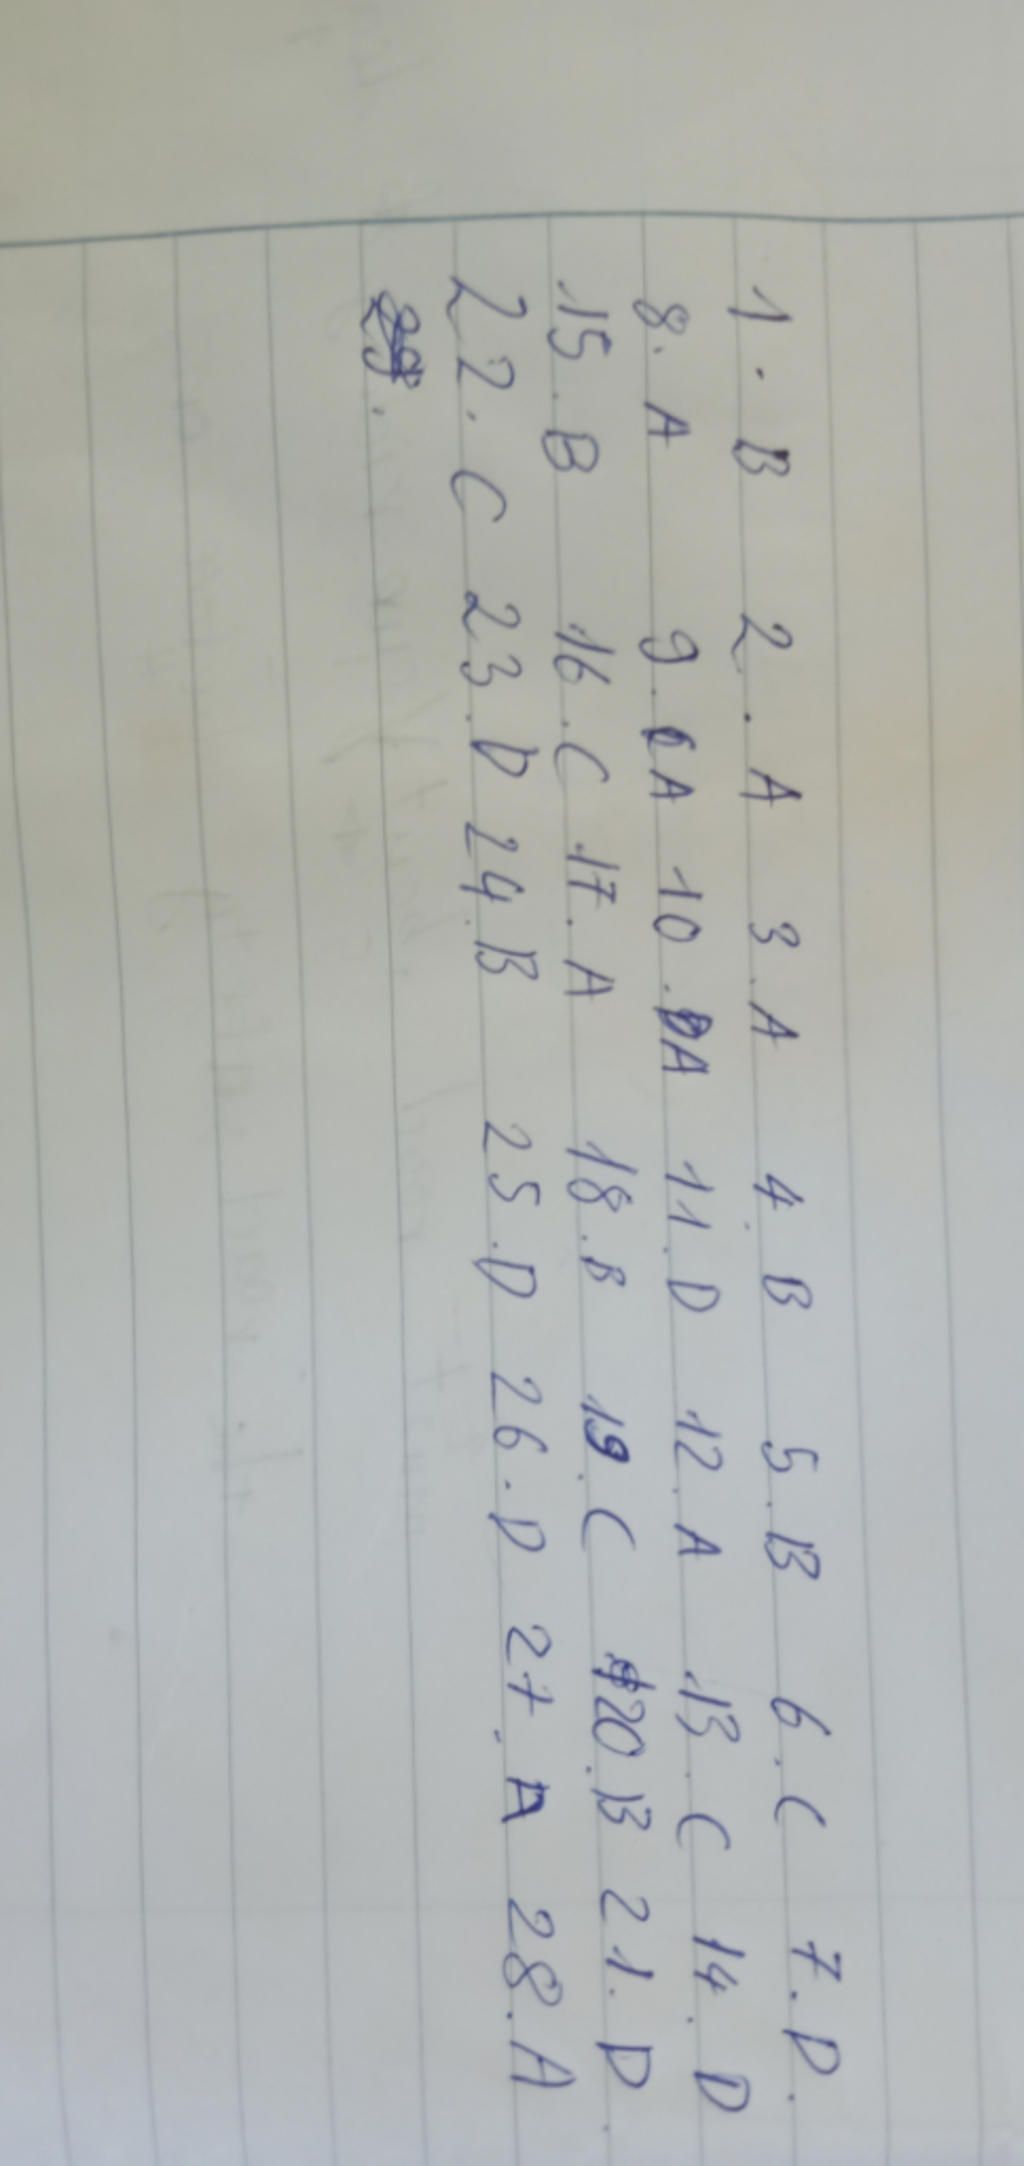 1. B 2. A 3. A 4. B 5. B 6. C 7. D.
8. A 9. A 10. A 11. D 12. A 13. C 14. D
15. B 16. C 17. A 18. B 19. C 20. B 21. D.
22. C 23. D 24. B 25. D 26. D 27. A 28. A